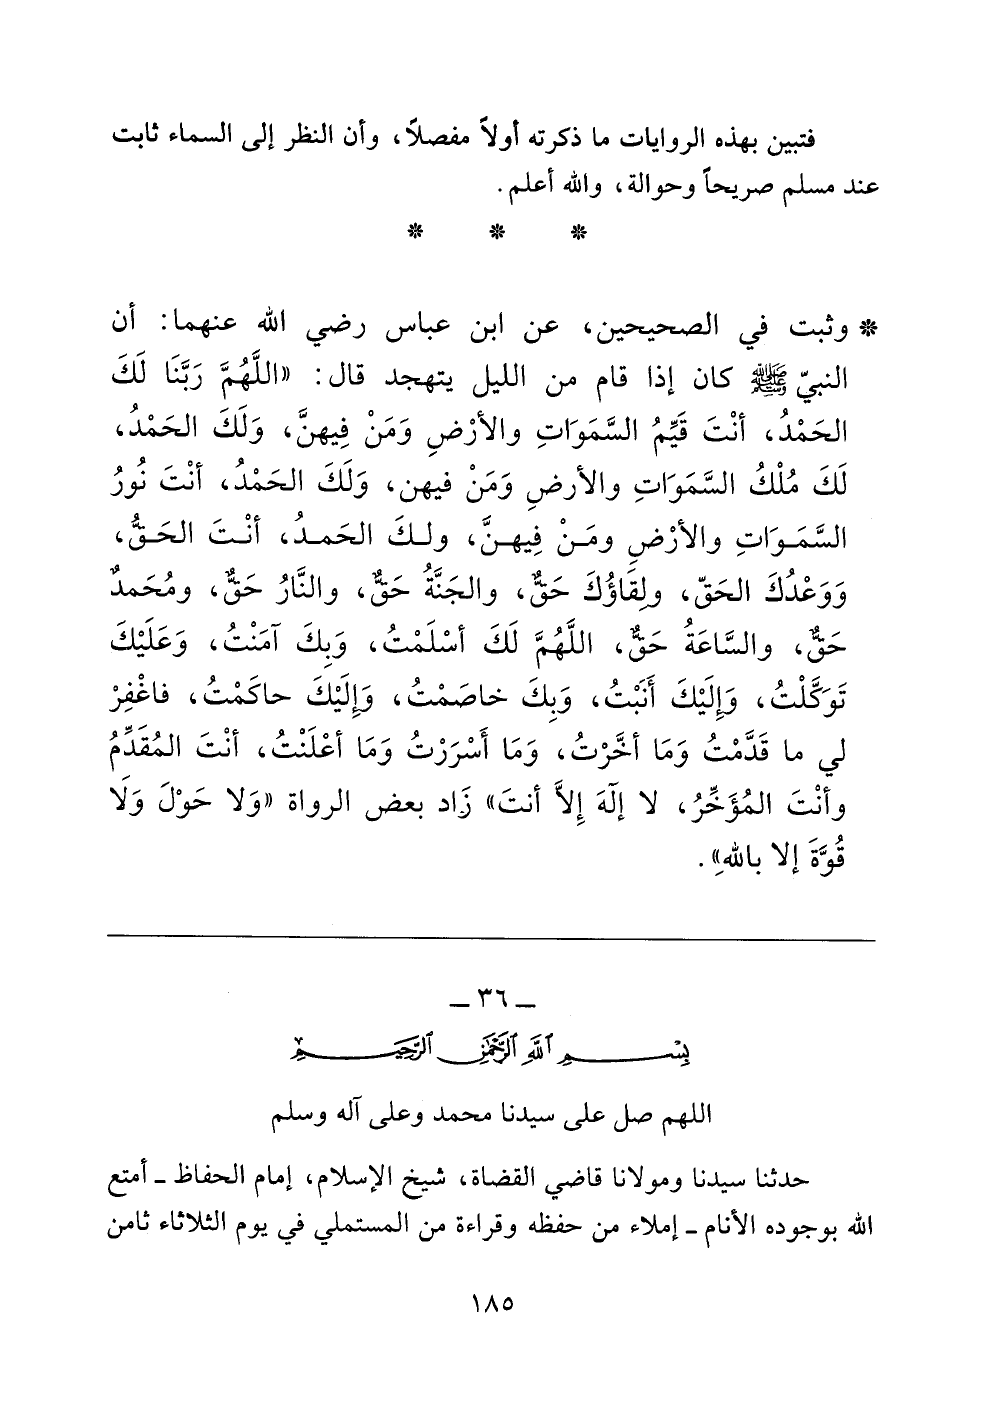 فتبين بهذه الروايات ما ذكرته أولاً مفصلاً، وأن النظر إلى السماء ثابت
عند مسلم صريحاً وحوالة، والله أعلم.
* * *
* وثبت في الصحيحين، عن ابن عباس رضي الله عنهما: أن
النبيّ ﷺ كان إذا قام من الليل يتهجد قال: «اللَّهُمَّ رَبَّنَا لَكَ
الحَمْدُ، أنْتَ قَيِّمُ السَّمَوَاتِ والأرْضِ وَمَنْ فِيهنَّ، وَلَكَ الحَمْدُ،
لَكَ مُلْكُ السَّمَوَاتِ والأرضِ وَمَنْ فيهن، وَلَكَ الحَمْدُ، أنْتَ نُورُ
السَّمَـوَاتِ والأرْضِ ومَـنْ فِيهـنَّ، ولـكَ الحَمـدُ، أنْـتَ الحَـقُّ،
وَوَعْدُكَ الحَقّ، ولِقَاؤُكَ حَقٌّ، والجَنَّةُ حَقٌّ، والنَّارُ حَقٌّ، ومُحَمدٌ
حَقٌّ، والسَّاعَةُ حَقٌّ، اللَّهُمَّ لَكَ أسْلَمْتُ، وَبِكَ آمَنْتُ، وَعَلَيْكَ
تَوَكَّلْتُ، وَإِلَيْكَ أَنَبْتُ، وَبِكَ خاصَمْتُ، وَإِلَيْكَ حاكَمْتُ، فاغْفِرْ
لي ما قَدَّمْتُ وَمَا أخَّرْتُ، وَمَا أَسْرَرْتُ وَمَا أعْلَنْتُ، أنْتَ المُقَدِّمُ
وأنْتَ المُؤَخِّرُ، لا إلَهَ إِلاَّ أنتَ» زَاد بعض الرواة «وَلا حَوْلَ وَلَا
قُوَّةَ إلا باللهِ».
ـ ٣٦ ـ
بِسْمِ ٱللَّهِ ٱلرَّحْمَٰنِ ٱلرَّحِيمِ
اللهم صل على سيدنا محمد وعلى آله وسلم
حدثنا سيدنا ومولانا قاضي القضاة، شيخ الإسلام، إمام الحفاظ ـ أمتع
الله بوجوده الأنام ـ إملاء من حفظه وقراءة من المستملي في يوم الثلاثاء ثامن
١٨٥